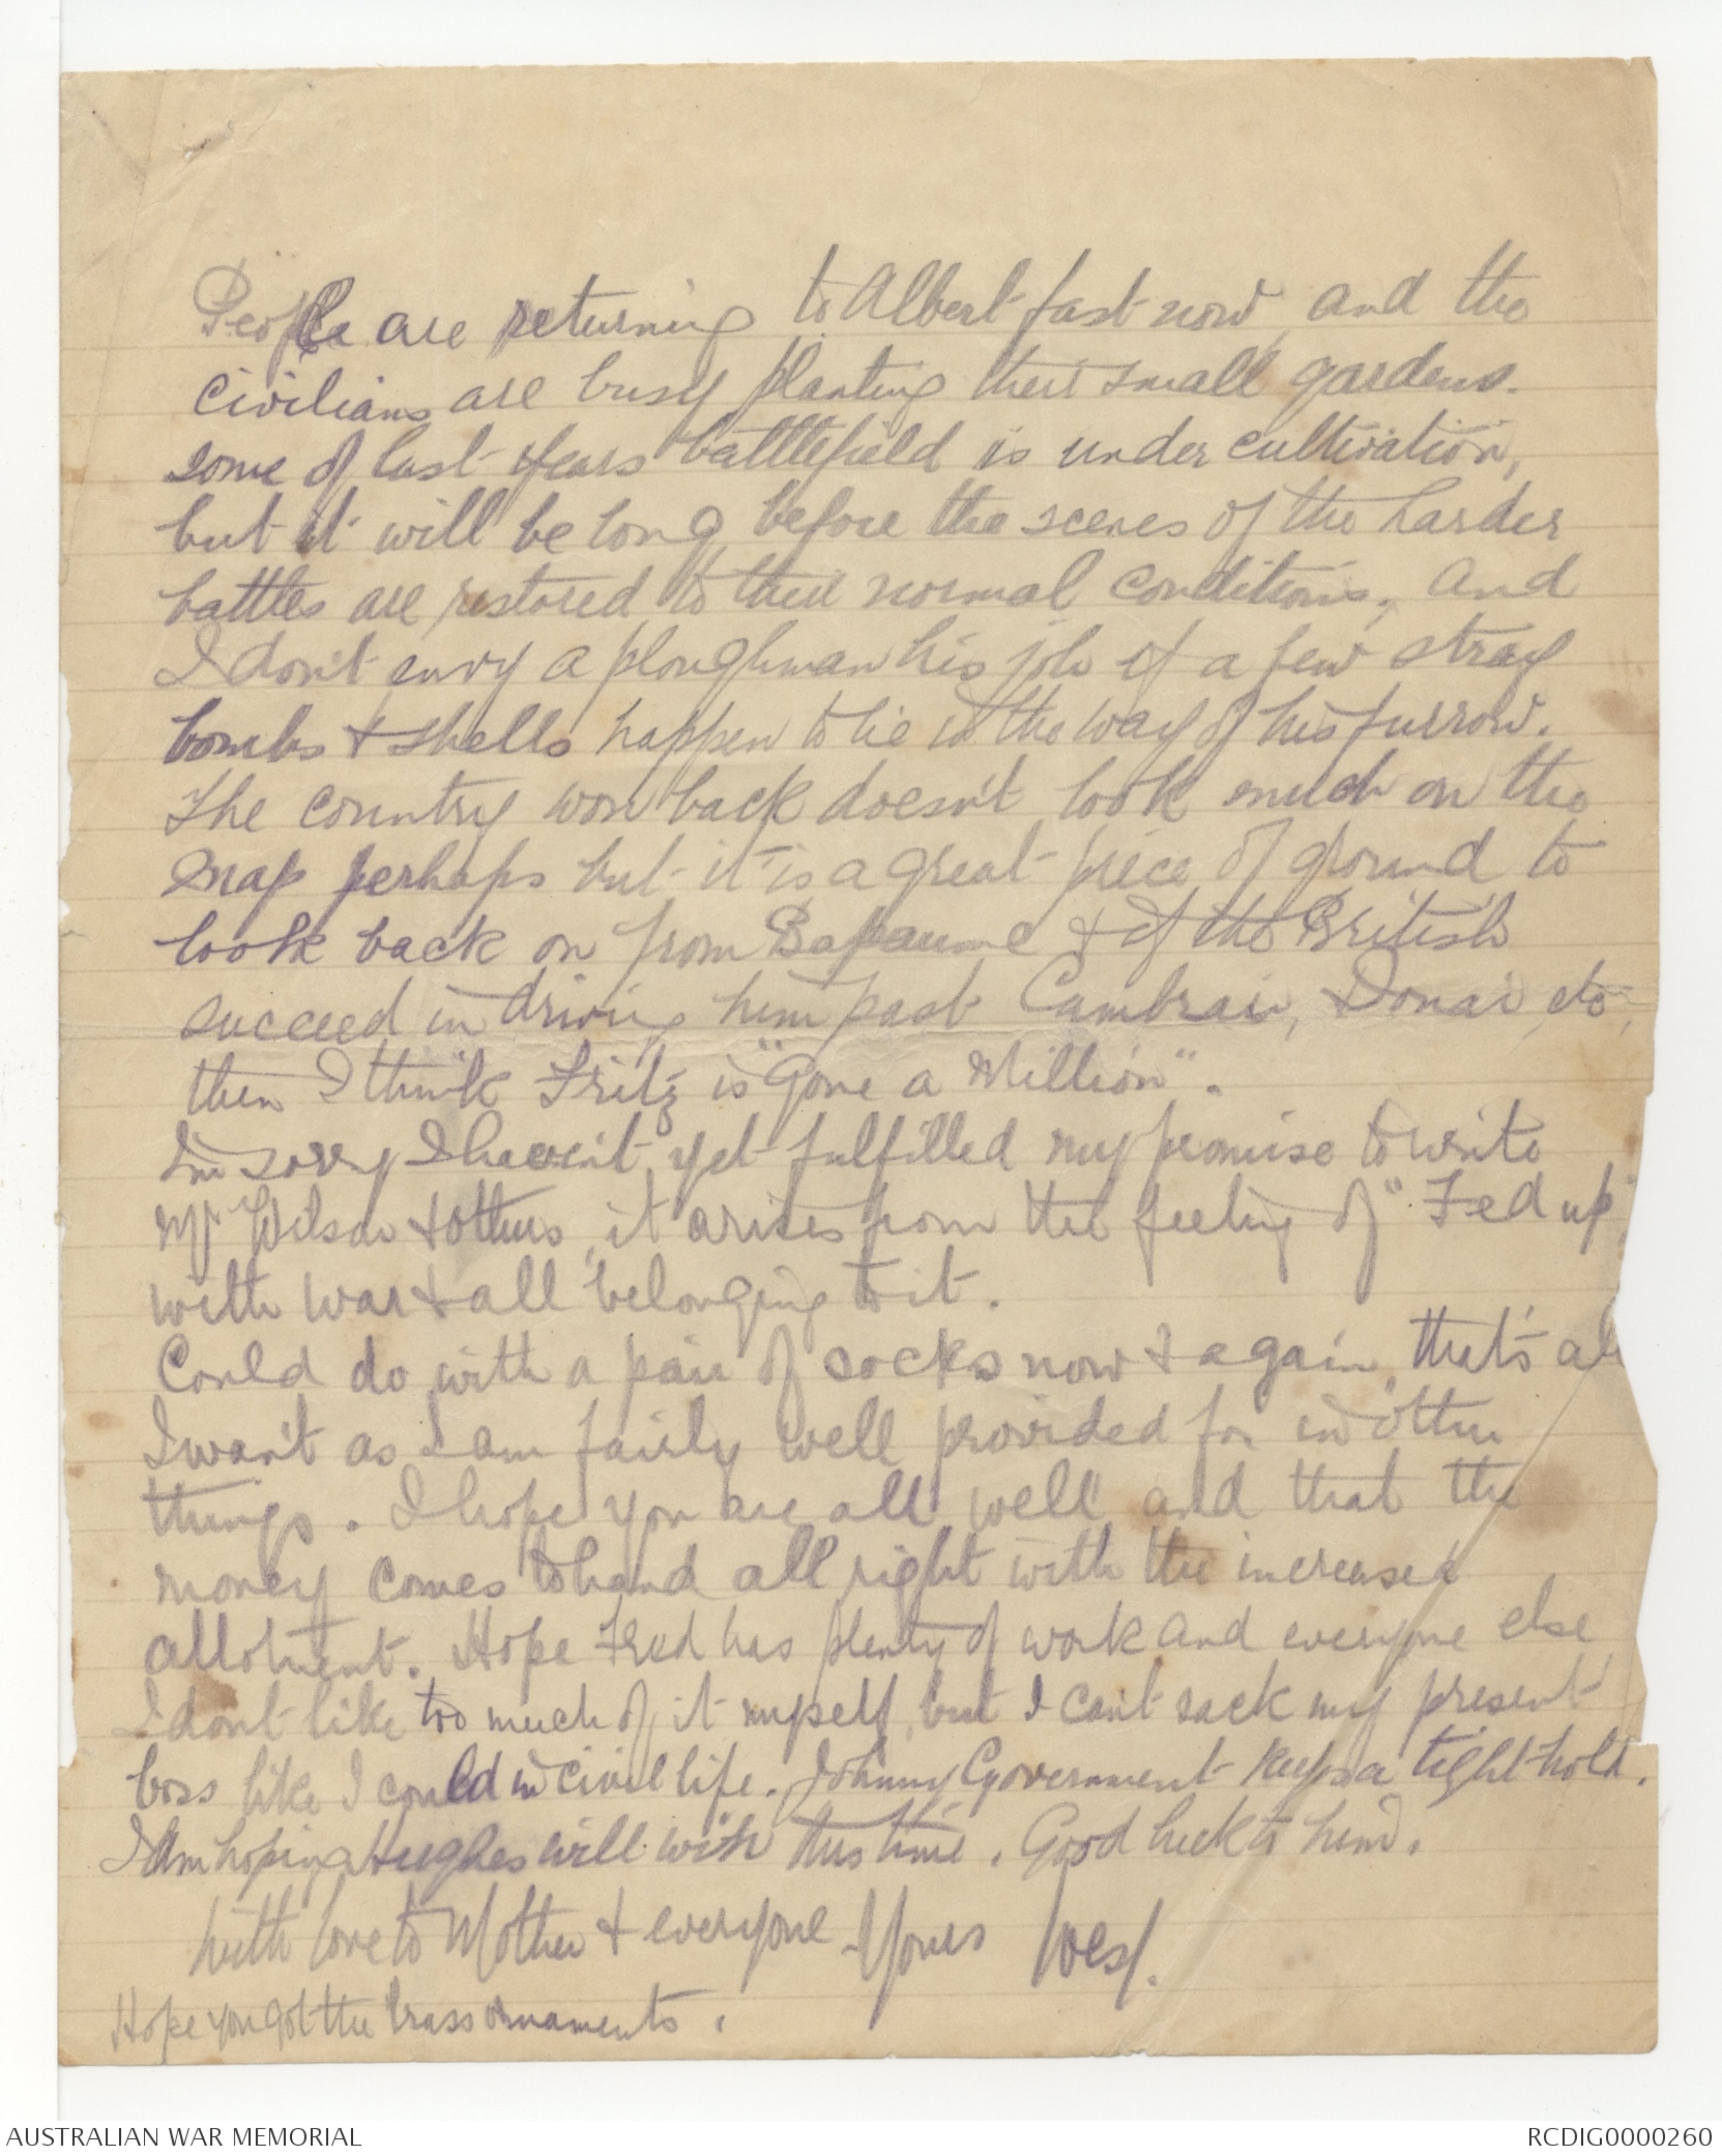 People are returning to Albert fast now, and the
civilians are busy planting their small gardens.
some of last years battlefield is under cultivation,
but it will be long before the scenes of the harder
battles are restored to their normal conditions, and
I don't envy a ploughman his job if a few stray
bombs & shells happen to lie in the way of his furrow.
The country won back doesn't look much on the
map perhaps but it is a great piece of ground to
look back on from Bapaume & if the British
succeed in driving him past Cambrai, Douai, etc,
then I think Fritz is "Gone a Million".
Im sorry I haven't yet fulfilled my promise to write
Mr Wilson & others, it arises from the feeling of "Fed up"
with war & all belonging to it.
Could do with a pair of socks now & again, that's al
I want as I am fairly well provided for in other
things. I hope you are all well and that the
money comes to hand all right with the increased
allotment. Hope Fred has plenty of work and everyone else
I dont like too much of it myself, but I can't sack my present
boss like I could in civil life. Johnny Government keeps a tight hold.
I am hoping Hughes will win this time. Good luck to him.
With love to Mother & everyone Yours Wesl.
Hope you got the brass ornaments.
AUSTRALIAN WAR MEMORIAL
RCDIG0000260